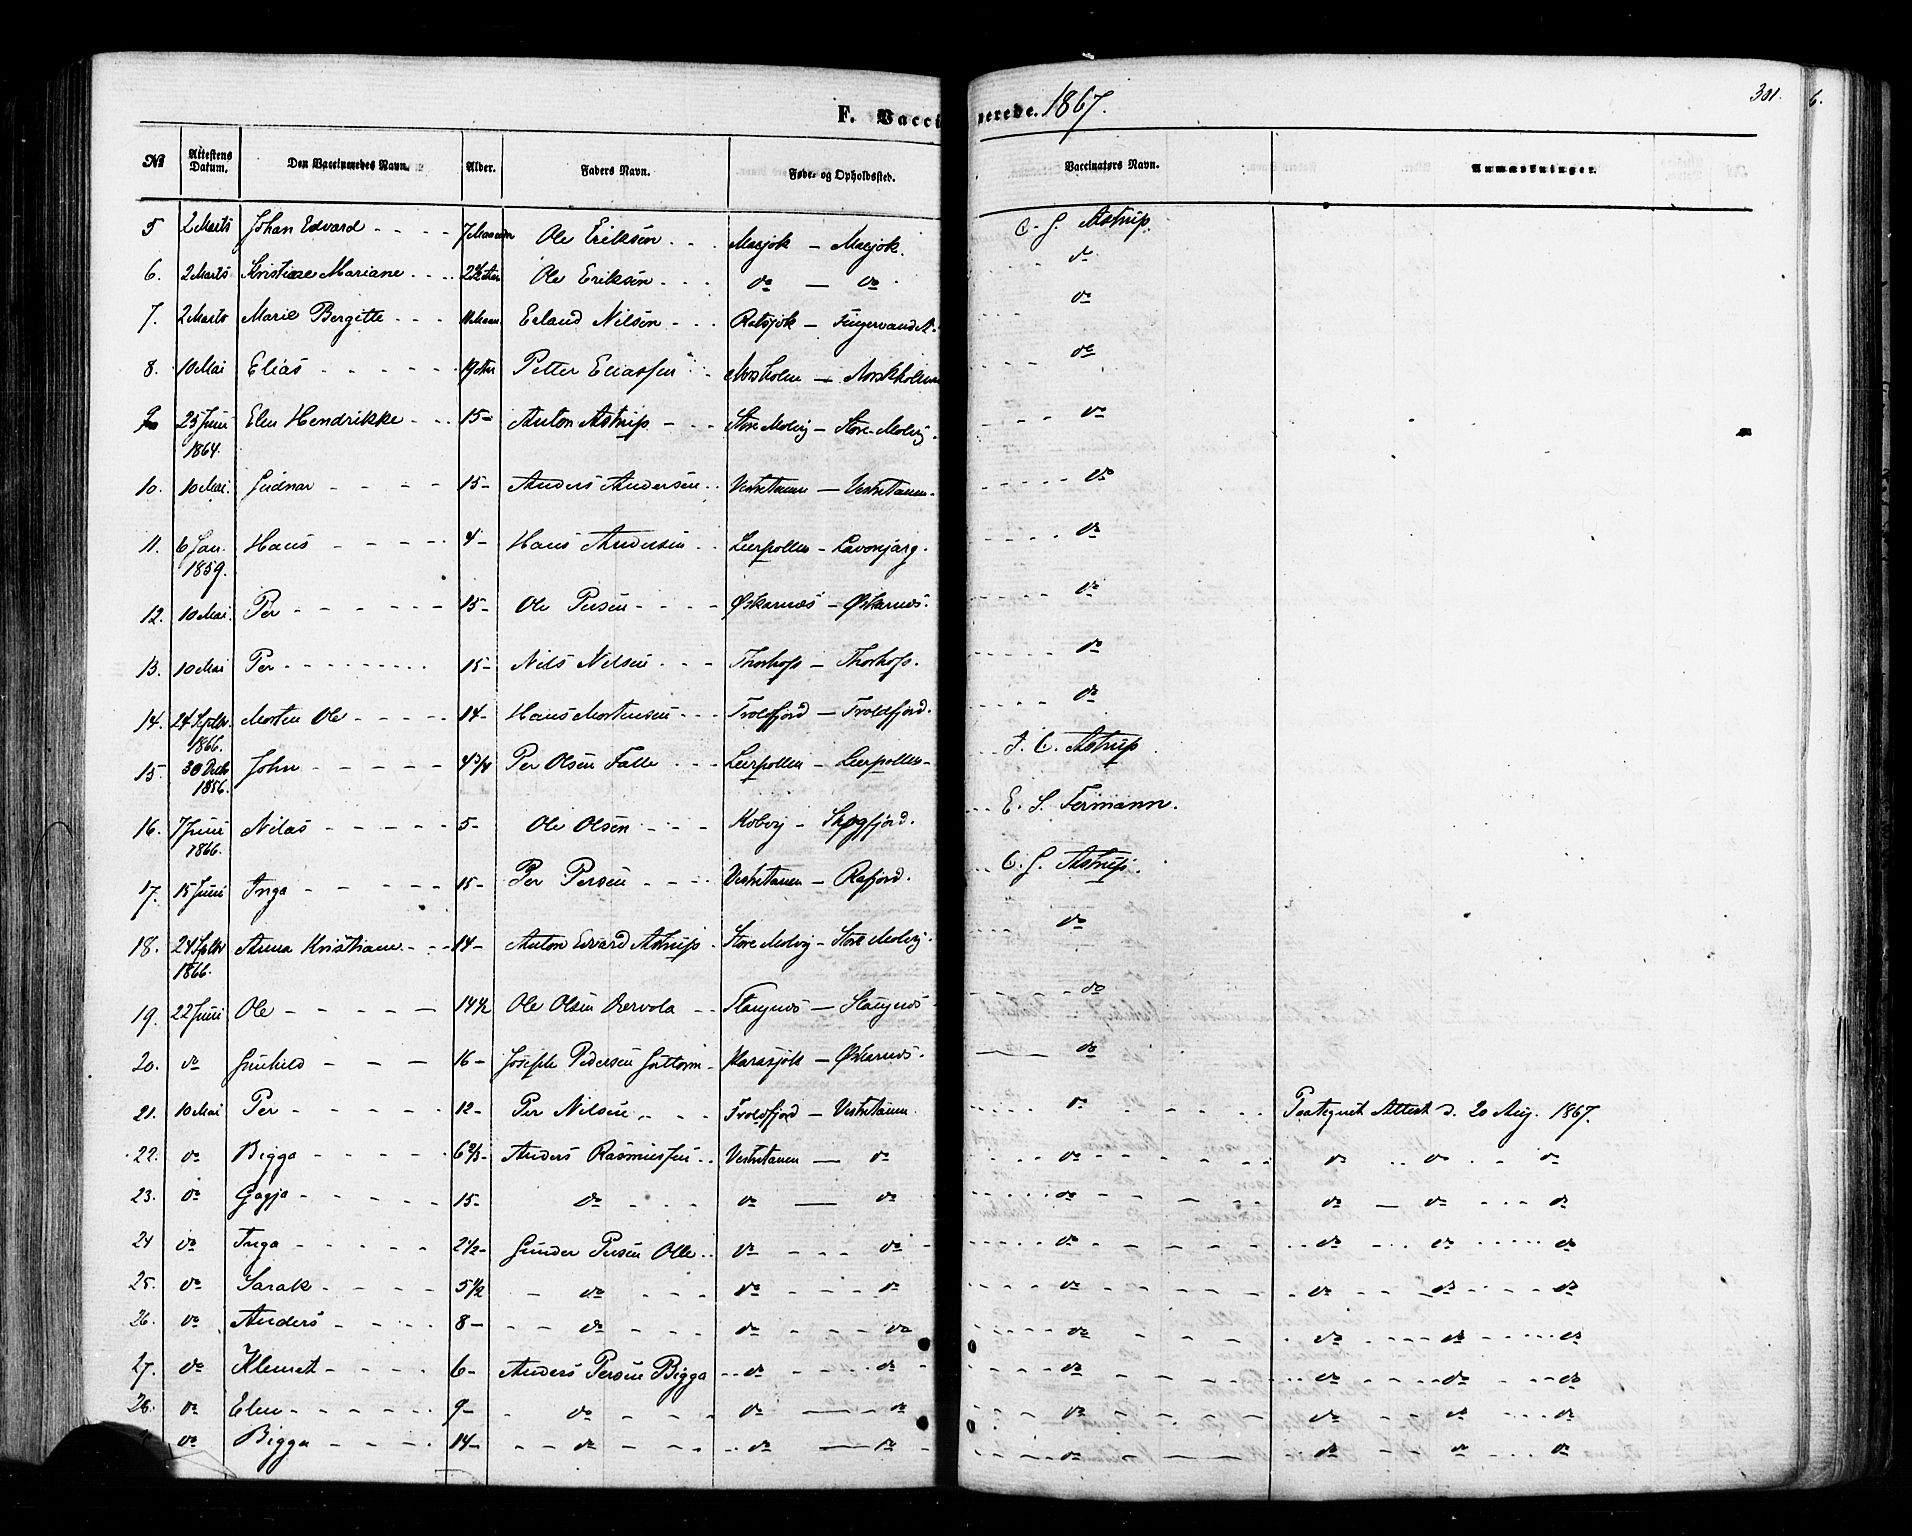 F. Vaccinerede. 1867.
301.
6.
No Attestens Datum. Den Vaccineredes Navn. Alder. Faders Navn. Føde- og Opholdssted. Vaccinatørs Navn. Anmærkninger.
5 2 Marts Johan Edvard - - - - 7 Maaneder Ole Eriksen - - - Masjok - Masjok. C. G. Astrup.
6. 2 Marts Mariane - - - Ole Eriksen - - - do - do do
7. 2 Marts Marie Bergitte - - - 11 Maan. Erland Nilsen - - - Ratsjok - do
8. 10 Mai Elias - - - - - - Petter Eliassen - - Norskholm - Norskholmen do
9 25 Juni 1864. Elen Hendrikke - - 15- Anton Astrup - - - Store Molvig - Store-Molvig. - - - do
10. 10 Mai. Gudnar - - - - 15- Anders Andersen - - Vestretanen - Vestretanen. - - - - - do
11. 6 Jan. 1859. Hans - - - - - 4- Hans Andersen - - Leerpollen - Lavonjarg. - - - - - do
12. 10 Mai. Per - - - - - - 15- Ole Persen - - - - Øskarnæs - Øskarnæs. - - - - - do
13. 10 Mai Per - - - - - - - - 15- Nils Nilsen - - - Thorhofs - Thorhofs. - - - - - do
14. 24 Septbr. 1866. Morten Ole - - - - - 14- Hans Mortensen - - - Troldfjord - Troldfjord. - - - - do
15. 30 Decbr 1856. John - - - - - 4 3/4 Per Olsen Falle - - - Leerpollen - Leerpollen- J. C. Astrup
16. 7 Juni 1866. Nilas - - - - - 5- Ole Olsen - - - - Kolvig - Skogfjord. - - - E. S. Fermann.
17. 15 Juni Inga - - - - - 15- Per Persen - - - - Vestretanen - Rafjord. - - C. G. Astrup.
18. 24 Septbr 1866. Anna Kristiane - - - 14- Anton Edvard Astrup - Store Molvig - Store Molvig. do
19. 22 Juni Ole - - - - - 14 1/2 Ole Olsen - - Stangnæs - Stangnæs - - - - - do
20. do Gunhild - - - - 16- Joseph Pedersen Guttorm - Karasjok - Øskarnæs. do
21. 10 Mai Per - - - - - 12- Per Nilsen - - - Troldfjord - Vestretanen. - - - - - do - - - - - - Attest d. 20 Aug. 1867.
22. do Bigga - - - - - 6 2/3- Anders Rasmussen - - Vestretanen - do - - - - - do - - - - - - do - - do - - do
23. do Gagja - - - - - 15- do - - - do - do - - - - - do - - - - do - do - - - do
24 do Inga - - - - - 2 1/2- Gunder Persen Olle - - do - - - do - - - - - - do - - - - do - - - do - - - - do
25. do Sarak - - - - - 5 1/2 - do - - - do - - - - do - - - - - do - - - - do - - - do - - - - do
26. do Anders - - - - 8- - - do - - - do - - - - do - - - - - - do - - - - do - - - - do - - - - do
27. do Klemet - - - - 6- Anders Persen Bigga - - do - - - - do - - - - - - do - - - - do - - - - do - - - - do
28. do Elen - - - - - - 9- - do - - - do - do - - - - - do - - - - do - - - do - - - - do
do Bigga - - - - - 14- - - do - - - - do - do - - - - - do - - - - do - - do - - - do